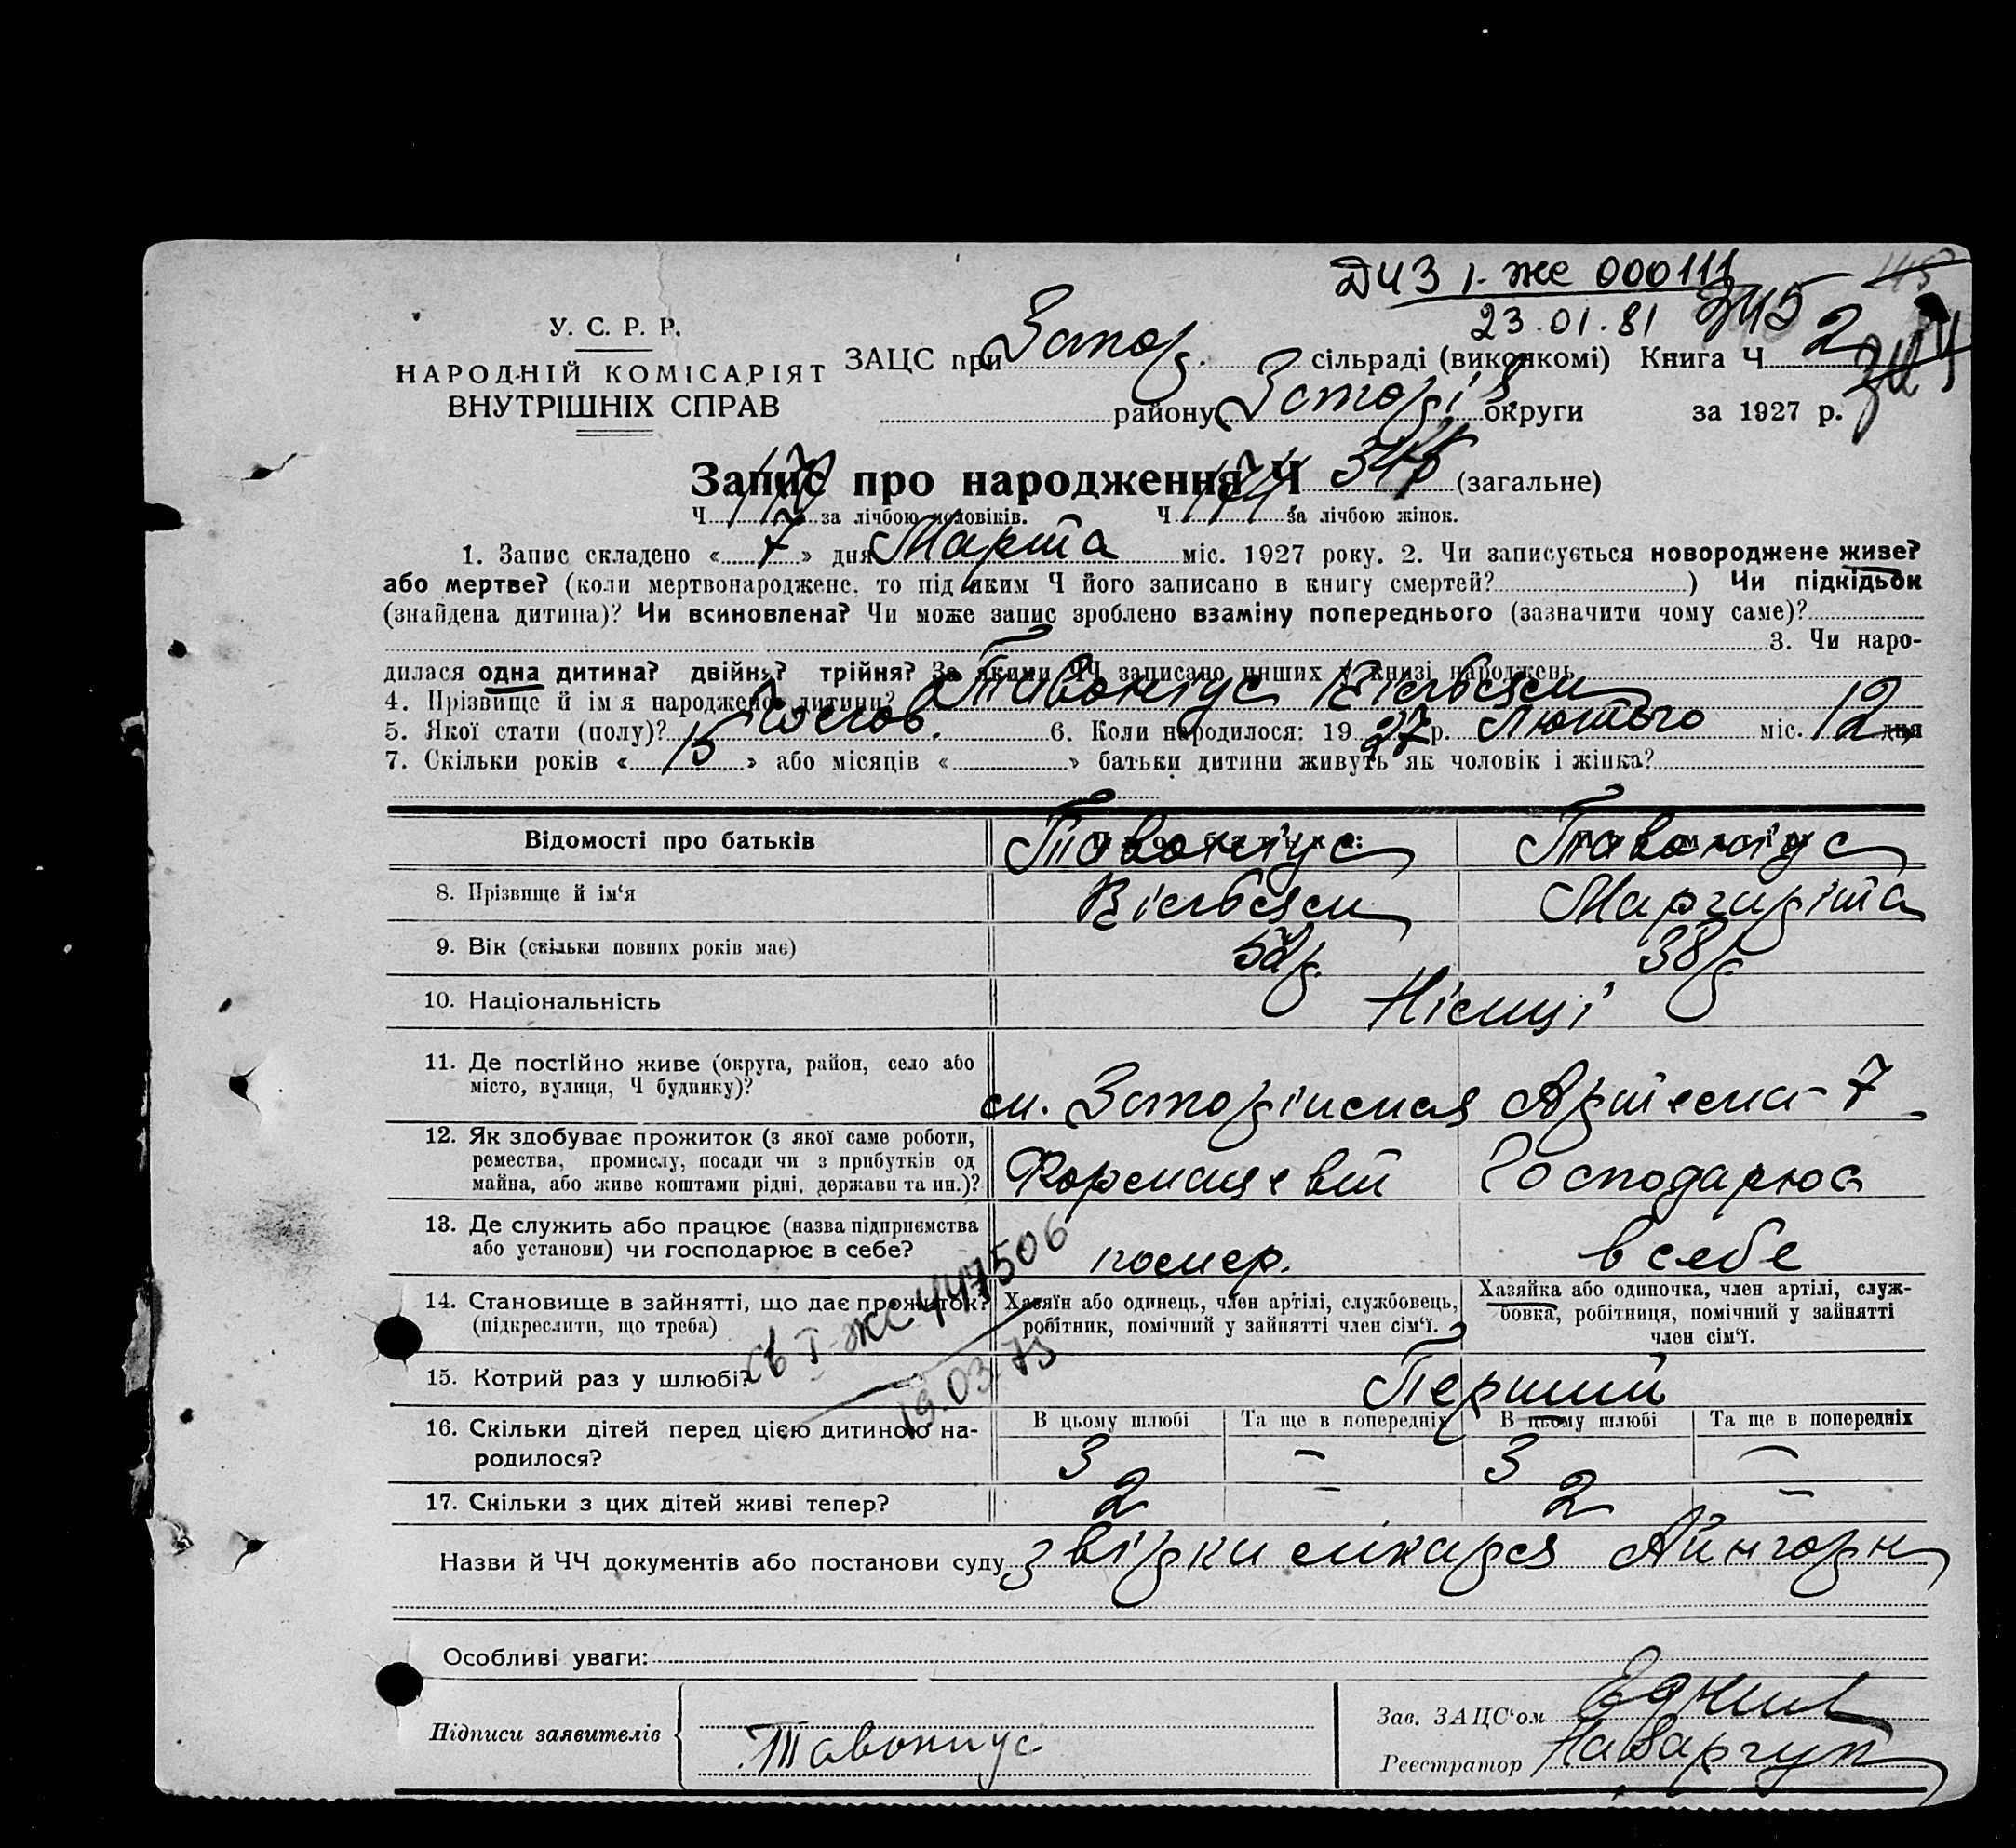 ДЧЗ I-ЖС 000111
23.01.81 345
У. С. Р. Р.
НАРОДНІЙ КОМІСАРІЯТ
ВНУТРІШНІХ СПРАВ
ЗАЦС при Запор. сільраді (виконкомі) Книга Ч 2
району Запоріз. округи за 1927 р.
Запис про народження Ч 345 (загальне)
Ч. за лічбою чоловіків. Ч. за лічбою жінок.
1. Запис складено « 7 » дня Марта міс. 1927 року. 2. Чи записується новороджене живе?
або мертве? (коли мертвонароджене, то під яким Ч його записано в книгу смертей? ) Чи підкідьок
(знайдена дитина)? Чи всиновлена? Чи може запис зроблено взаміну попереднього (зазначити чому саме)?
3. Чи наро-
дилася одна дитина? двійня? трійня? За якими ЧЧ записано инших у книзі народжень
4. Прізвище й ім'я народженої дитини? Тавоніус Вільгельм
5. Якої стати (полу)? Чолов. 6. Коли народилося: 1927 р. Лютого міс. 12 дня
7. Скільки років « 15 » або місяців « » батьки дитини живуть як чоловік і жінка?
Відомості про батьків Тавоніус Тавоніус
8. Прізвище й ім'я Вільгельм Маргаріта
9. Вік (скільки повних років має) 52 р. 38 р.
10. Національність Німці
11. Де постійно живе (округа, район, село або
місто, вулиця, Ч будинку)? м. Запоріжжя Артема - 7
12. Як здобуває прожиток (з якої саме роботи,
ремества, промислу, посади чи з прибутків од
майна, або живе коштами рідні, держави та ин.)? Формацевт Господарює
13. Де служить або працює (назва підприємства
або установи) чи господарює в себе? помер. в себе
14. Становище в зайнятті, що дає прожиток?
(підкреслити, що треба)
Хазяїн або одинець, член артілі, службовець,
робітник, помічний у зайнятті член сім'ї.
Хазяйка або одиночка, член артілі, служ-
бовка, робітниця, помічний у зайнятті
член сім'ї.
св I-ЖС 447506
19.03.75
15. Котрий раз у шлюбі? Перший
16. Скільки дітей перед цією дитиною на-
родилося?
В цьому шлюбі Та ще в попередніх В цьому шлюбі Та ще в попередніх
3 – 3 –
17. Скільки з цих дітей живі тепер? 2 – 2 –
Назви й ЧЧ документів або постанови суду
Особливі уваги:
Підписи заявителів Тавониус
Зав. ЗАЦС'ом
Реєстратор